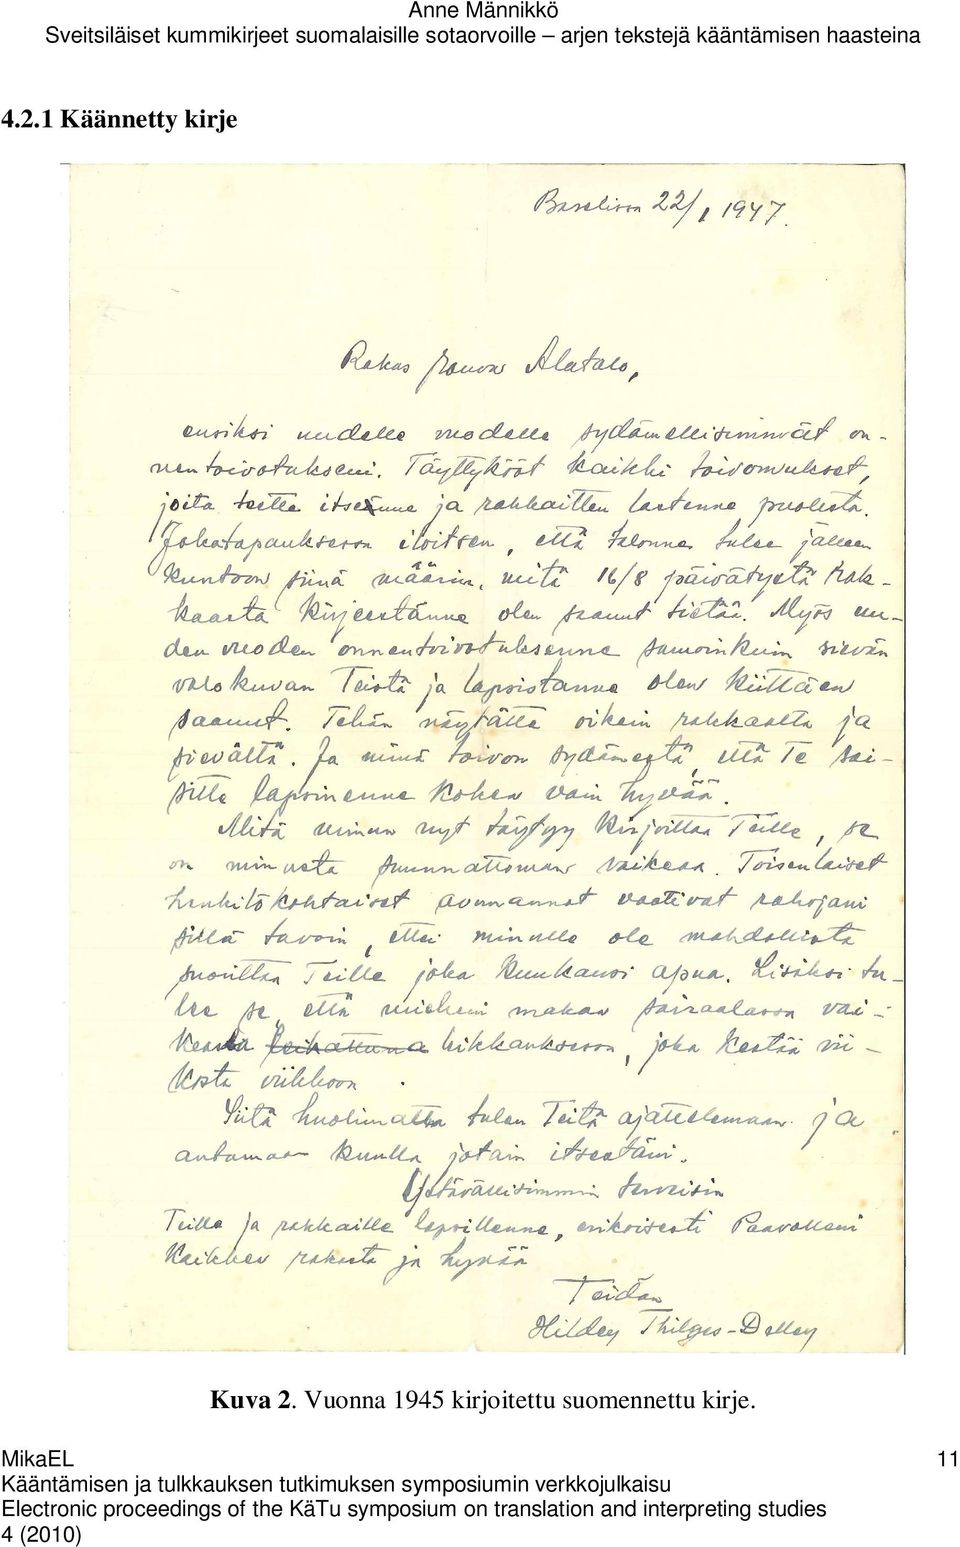 Anne Männikkö
Sveitsiläiset kummikirjeet suomalaisille sotaorvoille – arjen tekstejä kääntämisen haasteina
4.2.1 Käännetty kirje
22/1 1947.
Rakas rouva Alatalo,
ensiksi uudelle vuodelle sydämellisimmät on-
nentoivotukseni. Täyttykööt kaikki toivomukset,
joita teette itsenne ja rakkaitten lastenne puolesta.
Jokatapauksessa iloitsen, että talonne tulee jälleen
kuntoon siinä määrin, mitä 16/8 päivätystä rak-
kaasta kirjeestänne olen saanut tietää. Myös uu-
den vuoden onnentoivotuksenne samoinkuin sievän
valokuvan Teistä ja lapsistanne olen kiittäen
saanut. Tehän näytätte oikein rakkaalta ja
sievältä. Ja minä toivon sydämestä, että Te sai-
sitte lapsinenne kokea vain hyvää.
Mitä minun nyt täytyy kirjoittaa Teille, se
on minusta suunnattoman vaikeaa. Toisenlaiset
henkilökohtaiset avunannot vaativat rahojani
sillä tavoin, ettei minulle ole mahdollista
suorittaa Teille joka kuukausi apua. Lisäksi tu-
lee se, että mieheni makaa sairaalassa vai-
keassa leikkauksessa, joka kestää vii-
kosta viikkoon.
Siitä huolimatta tulen Teitä ajattelemaan ja
antamaan kuulla jotain itsestäni.
Ystävällisimmin terveisin
Teille ja rakkaille lapsillenne, erikoisesti Paavolleni
Kaikkea rakasta ja hyvää
Teidän
Thilges-
Kuva 2. Vuonna 1945 kirjoitettu suomennettu kirje.
MikaEL 11
Kääntämisen ja tulkkauksen tutkimuksen symposiumin verkkojulkaisu
Electronic proceedings of the KäTu symposium on translation and interpreting studies
4 (2010)